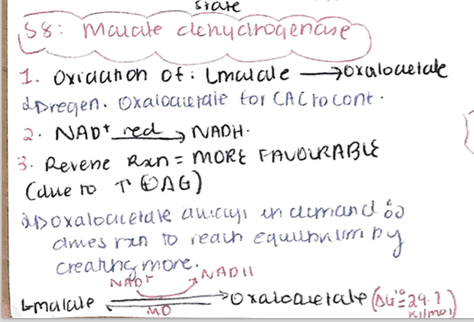 state
S8: Malate dehydrogenase
1. Oxidation of: Lmalate → Oxaloacetate
↳ regen. Oxaloacetate for CAC to cont.
2. NAD⁺ red → NADH.
3. Reverse Rxn = MORE FAVOURABLE
(due to ↑ ⊕ΔG)
↳ Oxaloacetate always in demand so
drives rxn to reach equilibrium by
creating more.
NAD⁺ → NADH
L-malate ⇌ Oxaloacetate (ΔG'° = 29.7
MD KJ/mol)